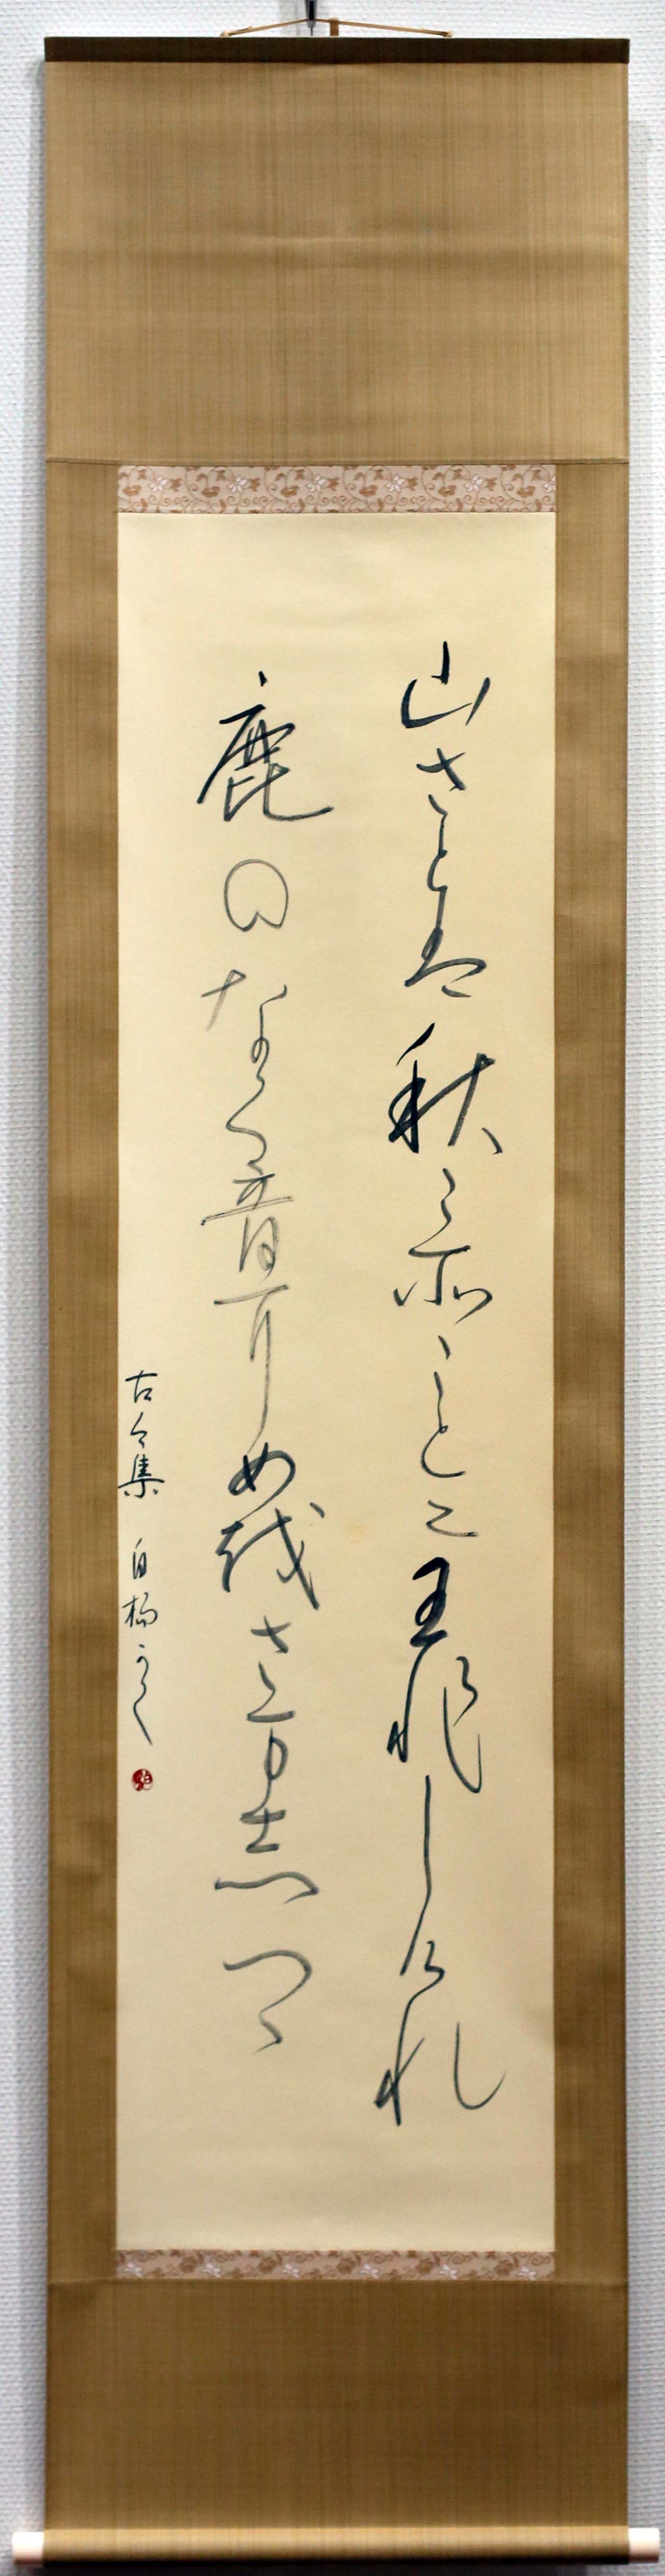 山さとは秋こ所ことにわ飛しけれ
鹿のなく音耳め越さ万志つゝ
古今集 白楊かく